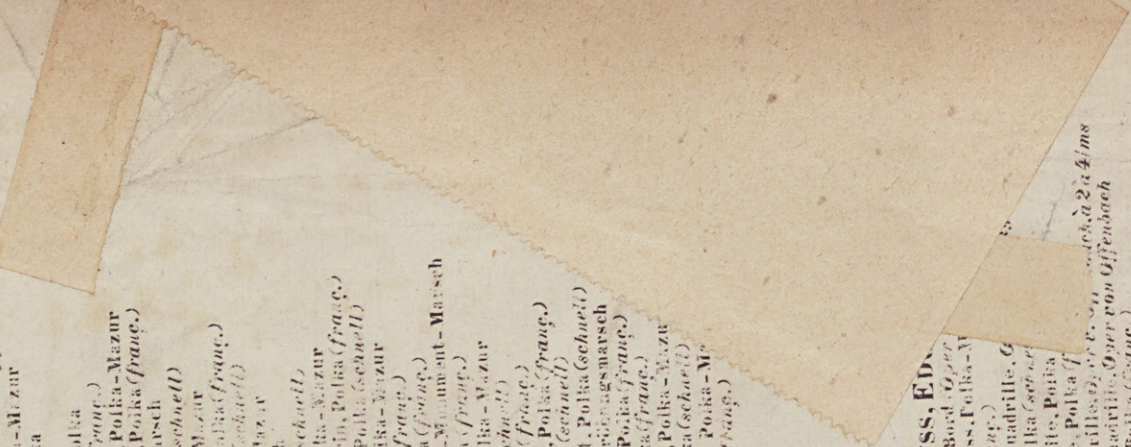 -Mazur
ka
olka
franç.)
Polka-Mazur
Polka (franç.)
arsch
schnell)
Mazur
lka (franç.)
schnell)
azur
schnell)
lka-Mazur
in, Polka (franç.)
Polka (schnell)
lka-Mazur
franç.)
a (franç.)
Monument-Marsch
a (franç.)
lka-Mazur
hnell)
(franç.)
Polka (franç.)
(schnell)
Polka (schnell)
rönungsmarsch
Polka (franç.)
ka (franç.)
Polka-Mazu
ka (schnell)
Polka-Ma
franç.)
ss, ED
Oper
ss, Polka-M
ç.)
adrille,
lka (schne
te, Polka
Polka (f
à 2 à 4/ms
adrille Oper von Offenbach
franç.)